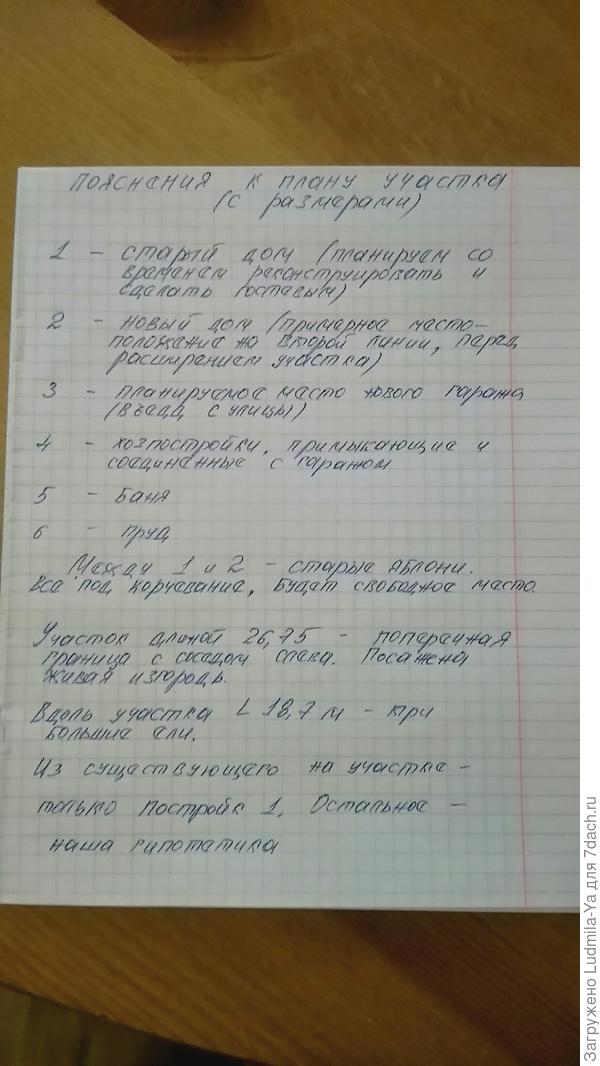 Пояснения к плану участка
(с размерами)
1 - старый дом (планируем со
временем реконструировать и
сделать гостевым)
2 - новый дом (примерное место-
положение на второй линии, перед
расширением участка)
3 - планируемое место нового гаража
(въезд с улицы))
4 - хозпостройки, примыкающие и
соединенные с гаражом
5 - Баня
6 - пруд
Между 1 и 2 - старые яблони.
Все под корчевание, будет свободное место.
Участок длиной 26,75 - поперечная
граница с соседом слева. Посажена
живая изгородь.
Вдоль участка L 18,7 м - три
большие ели.
Из существующего на участке -
только построй 1. Остальное -
наша гипотетика
Загружено Ludmila-Ya для 7dach.ru